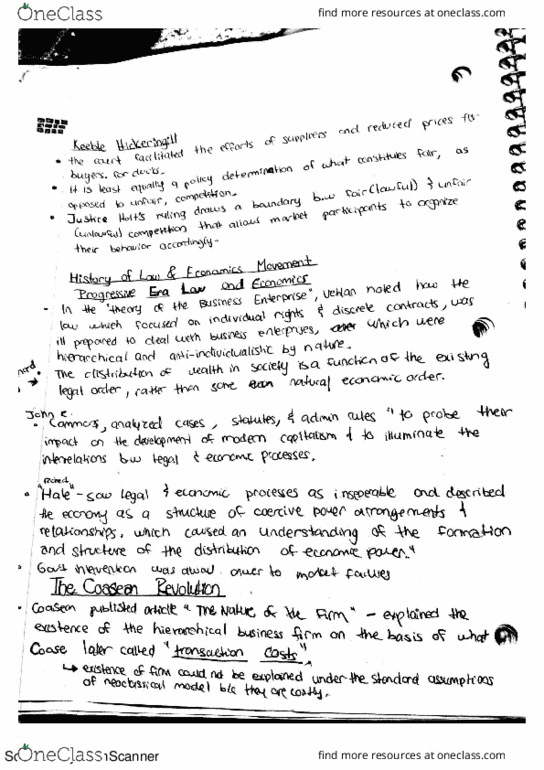 OneClass
find more resources at oneclass.com
Keeble Hickeringill
• the court facilitated the efforts of suppliers and reduced prices for
buyers, for ducks.
• It is least equally a policy determination of what constitutes fair, as
opposed to unfair, competition.
• Justice Holt's ruling draws a boundary b/w fair (lawful) & unfair
(unlawful) competition that allows market participants to organize
their behavior accordingly.
History of Law & Economics Movement
Progressive Era Law and Economics
• In the "theory of the Business Enterprise", Veblan noted how the
law which focused on individual rights & discrete contracts, was
ill prepared to deal with business enterprises, which were
hierarchical and anti-individualistic by nature.
• The distribution of wealth in society is a function of the existing
legal order, rather than some natural economic order.
John R.
• Commons, analyzed cases, statutes, & admin rules "to probe their
impact on the development of modern capitalism & to illuminate the
interrelations b/w legal & economic processes.
• "Hale" - saw legal & economic processes as inseperable and described
the economy as a structure of coercive power arrangements &
relationships, which caused an understanding of the formation
and structure of the distribution of economic power."
• Govt intervention was answer to market failures
The Coasean Revolution
• Coasean published article "The Nature of the Firm" - explained the
existence of the hierarchical business firm on the basis of what
Coase later called "transaction costs"
↳ existence of firm could not be explained under the standard assumptions
of neoclassical model b/c they are costly.
OneClass
Scanner
find more resources at oneclass.com